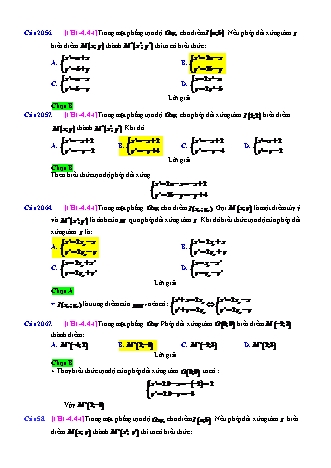 Câu 2056. [1H1-4.4-1] Trong mặt phẳng tọa độ Oxy, cho điểm I(a;b). Nếu phép đối xứng tâm I
biến điểm M(x;y) thành M'(x';y') thì ta có biểu thức:
A. {x'=a+x y'=b+y B. {x'=2a-x y'=2b-y
C. D.
Lời giải
Chọn B
Câu 2057. [1H1-4.4-1] Trong mặt phẳng tọa độ Oxy, cho phép đối xứng tâm I(1;2) biến điểm
M(x;y) thành M'(x';y'). Khi đó
A. {x'=-x+2 y'=-y-2 B. {x'=-x+2 y'=-y+4 C. {x'=-x+2 y'=-y-4 D. {x'=x+2 y'=y-2
Lời giải
Chọn B
Theo biểu thức tọa độ phép đối xứng
{x'=2a-x=-x+2 y'=2b-y=-y+4
Câu 2064. [1H1-4.4-1] Trong mặt phẳng Oxy, cho điểm I(x₀;y₀). Gọi M(x;y) là một điểm tùy ý
và M'(x';y') là ảnh của M qua phép đối xứng tâm I. Khi đó biểu thức tọa độ của phép đối
xứng tâm I là:
A. {x'=2x₀-x y'=2y₀-y B. {x'=2x₀+x y'=2y₀+y
C. {x=2x₀+x' y=2y₀+y' D. {x=x₀-x' y=y₀-y'
Lời giải
Chọn A
+ I(x₀;y₀) là trung điểm của MM' nên có: {x'+x=2x₀ y'+y=2y₀ ⇔ {x'=2x₀-x y'=2y₀-y
Câu 2067. [1H1-4.4-1] Trong mặt phẳng Oxy. Phép đối xứng tâm O(0;0) biến điểm M(-2;3)
thành điểm:
A. M'(-4;2) B. M'(2;-3) C. M'(-2;3) D. M'(2;3)
Lời giải
Chọn B
+ Thay biểu thức tọa độ của phép đối xứng tâm O(0;0) ta có:
{x'=2.0-x=-(-2)=2 y'=2.0-y=-3
Vậy M'(2;-3)
Câu 58. [1H1-4.4-1] Trong mặt phẳng tọa độ Oxy, cho điểm I(a;b). Nếu phép đối xứng tâm I biến
điểm M(x;y) thành M'(x';y') thì ta có biểu thức: